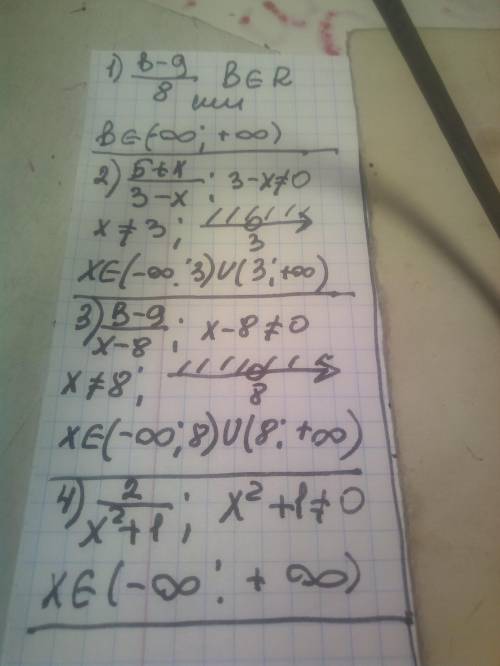 1) в-9/8 В∈R
или
В∈(-∞; +∞)
2) 5+x/3-x; 3-x≠0
x≠3; 3
x∈(-∞; 3)∪(3; +∞)
3) в-9/x-8; x-8≠0
x≠8; 8
x∈(-∞; 8)∪(8; +∞)
4) 2/x²+1; x²+1≠0
x∈(-∞; +∞)